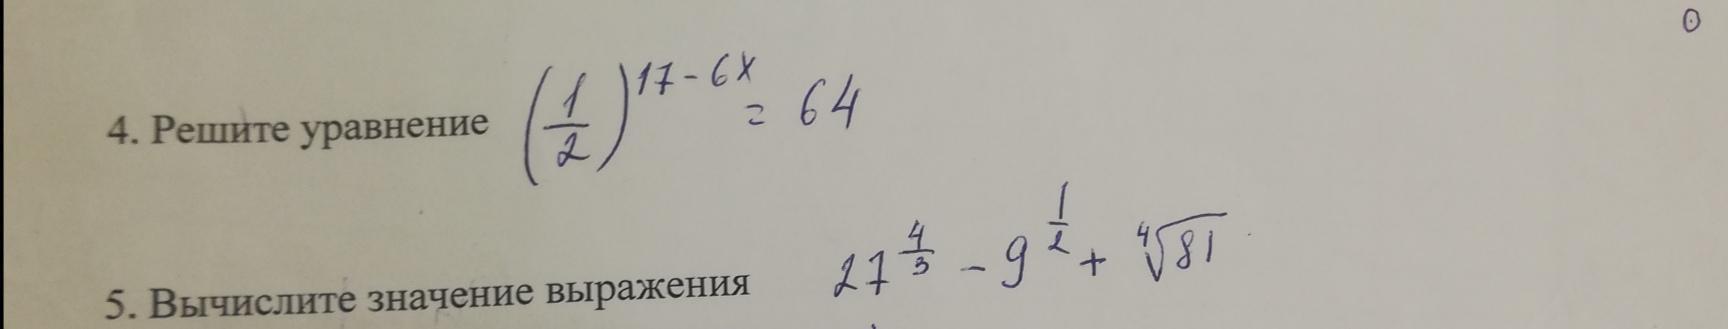 4. Решите уравнение (1/2)^(17-6x) = 64
5. Вычислите значение выражения 27^(4/3) - 9^(1/2) + ⁴√81